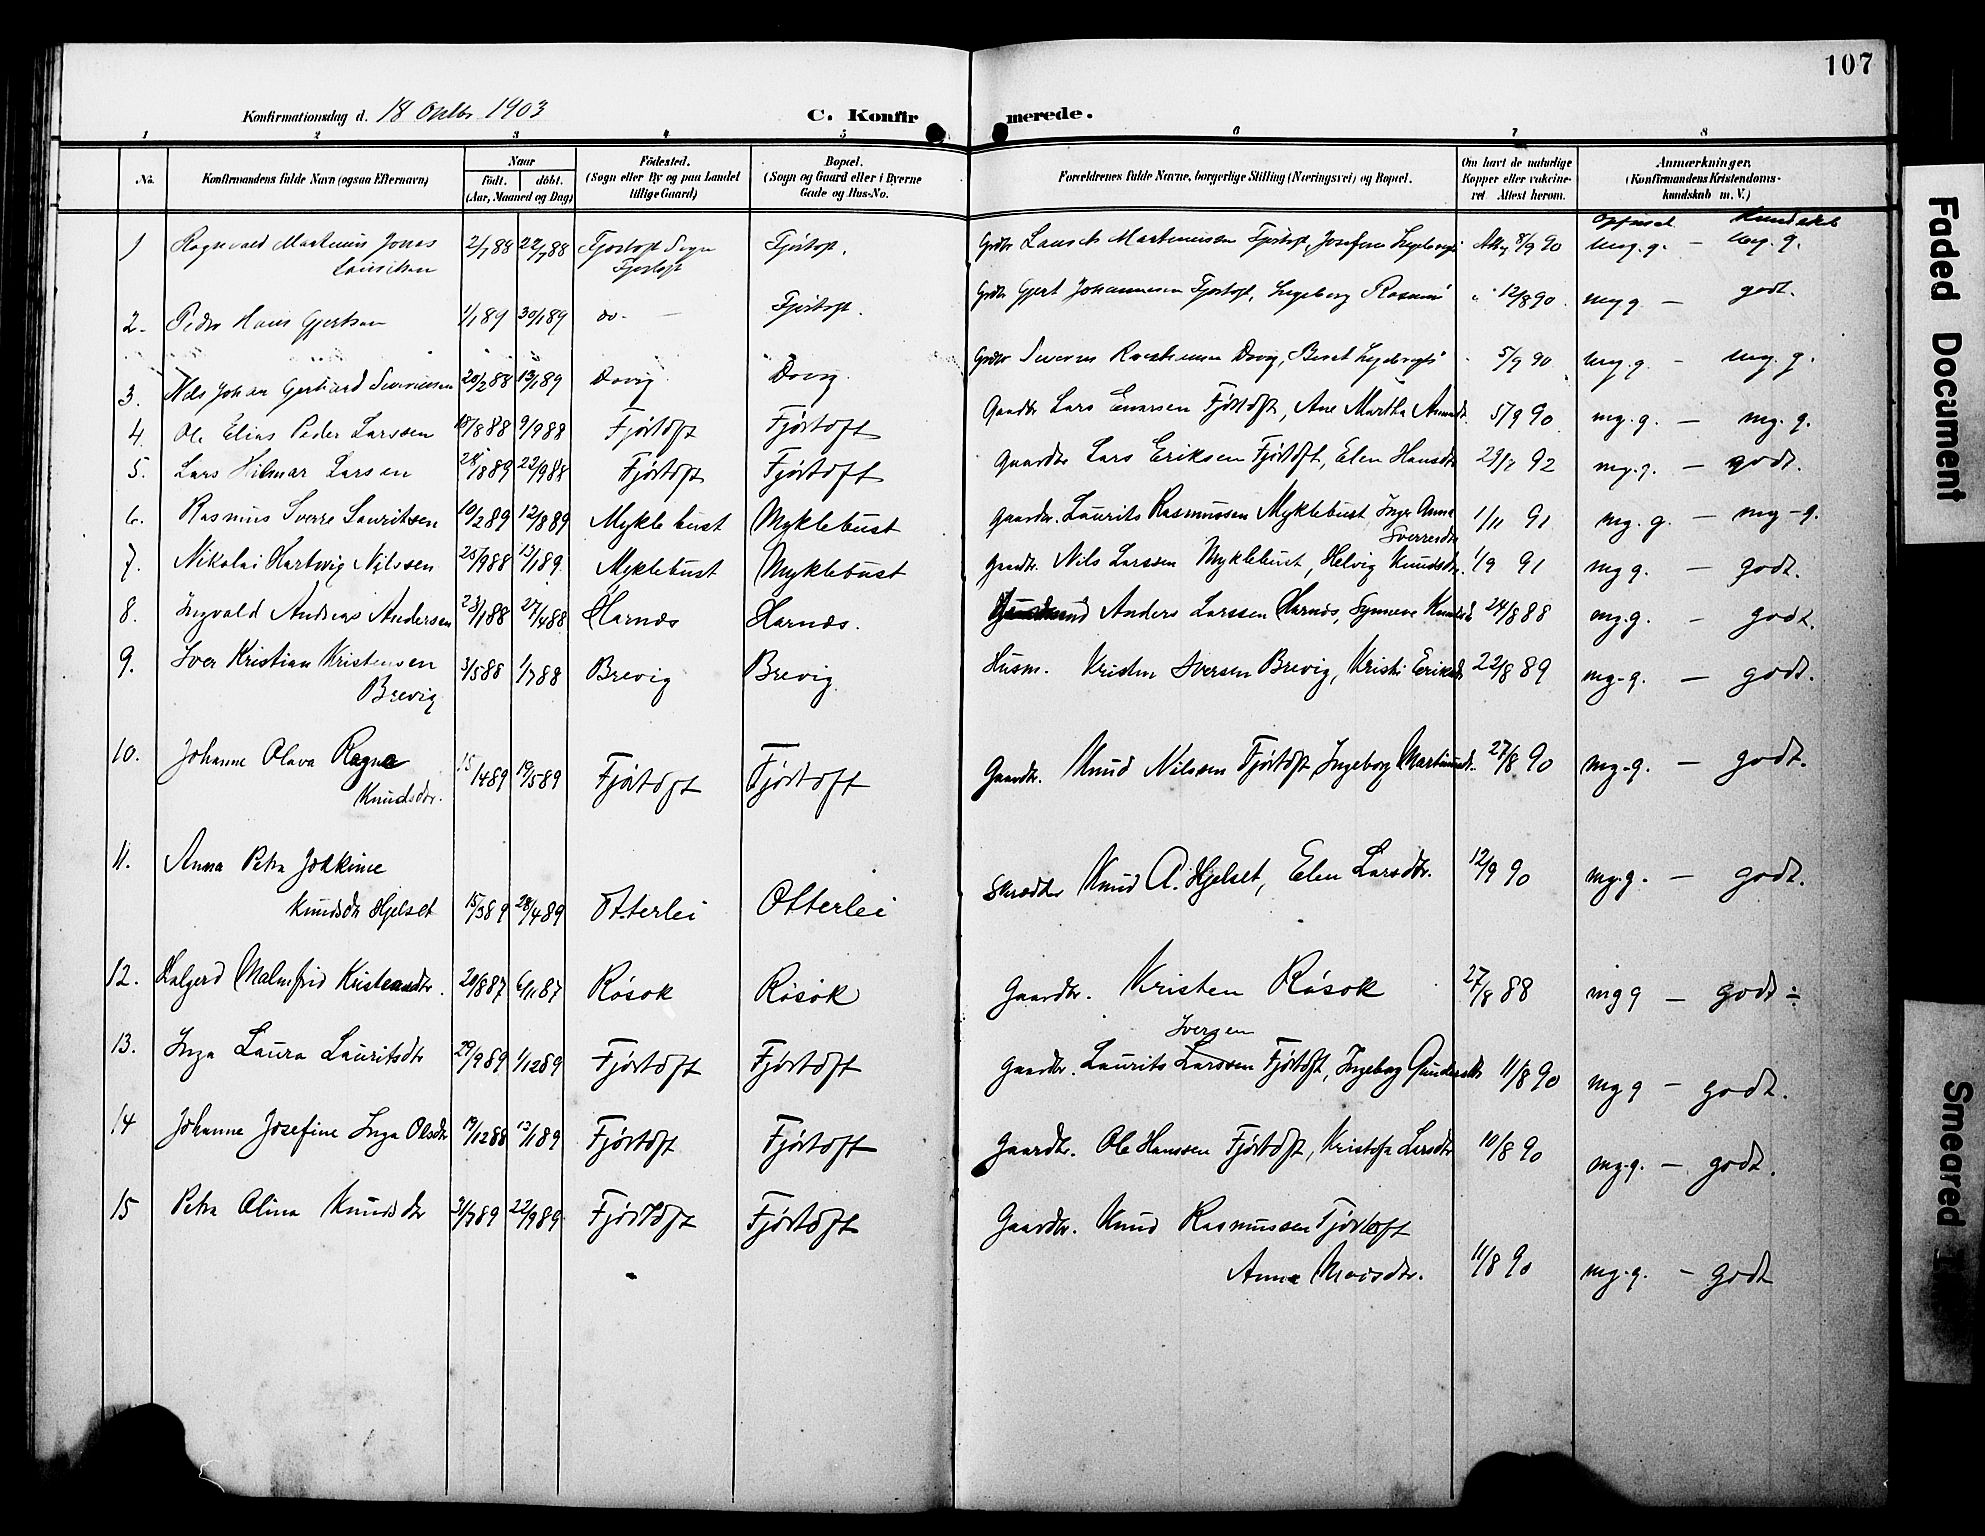 107
Konfirmationsdag d. 18 Oktbr 1903 C. Konfirmerede.
1 2 3 4 5 6 7 8
No. Konfirmandens fulde Navn (ogsaa Efternavn) Naar født. døbt. (Aar, Maaned og Dag) Fødested. (Sogn eller By og paa Landet tillige Gaard) Bopæl. (Sogn og Gaard eller i Byerne Gade og Hus-No. Forældrenes fulde Navne, borgerlige Stilling (Næringsvei) og Bopæl. Om havt de naturlige Kopper eller vakcineret Attest herom. Anmærkninger. (Konfirmandens Kristendomskundskab m. V.)
Opførsel Kundskb
1 Ragnvald Martinus Jonas 2/7 88 22/7 88 Fjørtoft Sogn Fjørtoft. Grdbr Martinussen Fjørtoft, Josefine 8/9 90 meg. g. – meg. g.
Lauritsen Fjørtoft
2. Peder Hans Gjertsen 1/1 89 30/1 89 do. – Fjørtoft. Grdbr Gjert Johannessen Fjørtoft, Ingeborg " 12/8 90 meg g – godt.
3. Nils Johan Gerhard Severinsen 20/12 88 13/1 89 Dovig Dovig. Grdbr Severin Dovig, Beret 5/9 90 meg g. – meg. g.
4. Ole Elias Peder Larssen 18/8 88 9/9 88 Fjørtoft Fjørtoft Gaardbr Lars Fjørtoft, Ane Martha 5/9 90 mg. g. – mg. g.
5. Lars Hilmar Larsen 28/8 89 22/9 88 Fjørtoft Fjørtoft Gaardbr Lars Eriksen Fjørtoft, Elen Hansdtr 23/7 92 mg. g. – godt.
6. Rasmus Sverre Lauritsen 10/2 89 12/8 89 Myklebust Myklebust Gaardbr. Laurits Rasmussen Myklebust, Inger Anna 1/11 91 mg. g. – mg – g.
Sverresdtr
7. Nikolai Hartvig Nilssen 25/9 88 13/1 89. Myklebust Myklebust Gaardbr. Nils Larssen Myklebust, Helvig Knudsdtr. 1/9 91 mg g. – godt.
8. Ingvald Andreas Andersen 23/1 88 27/4 88. Harnæs Harnæs. Anders Larssen Harnæs, Synneve Knudsdtr 24/8 88 mg. g. – godt.
9. Iver Kristian Kristensen 3/5 88 1/7 88 Brevig Brevig. Husm. Kristen Iversen Brevig, Kristi Eriksdtr 22/8 89 mg. g. – godt.
Brevig
10. Johanne Olava Ragna 15/4 89 19/5 89 Fjørtoft Fjørtoft Gaardbr. Knud Nilssen Fjørtoft, Ingeborg Martinusdtr. 27/8 90 mg. g. – godt.
Knudsdtr.
11. Anna Petra Joakime
Knudsdtr Hjelset 15/3 89 28/4 89 Otterlei Otterlei Skrædder Knud A. Hjelset, Elen Larsdtr. 12/9 90 mg. g. – godt.
12. Malmfrid Kristensdtr. 20/8 87 6/11 87 Røsok Røsok Gaardbr. Kristen Røsok 27/8 88 mg g – godt ÷
Iversen
13. Inga Laura Lauritsdtr 29/9 89 1/12 89 Fjørtoft Fjørtoft Gaardbr. Laurits Larssen Fjørtoft, Ingeborg Gundersdtr 11/8 90 mg g – godt.
14 Johanne Josefine Inga Olsdtr 19/12 88 13/1 89 Fjørtoft Fjørtoft Gaardbr. Ole Hanssen Fjørtoft, Larsdtr 10/8 90 mg. g. – godt.
15 Petra Olina Knudsdtr 31/7 89 22/9 89 Fjørtoft Fjørtoft Gaardbr. Knud Rasmussen Fjørtoft
Anne Madsdtr. 11/8 90 mg. g. – godt
Faded Document
Smeared